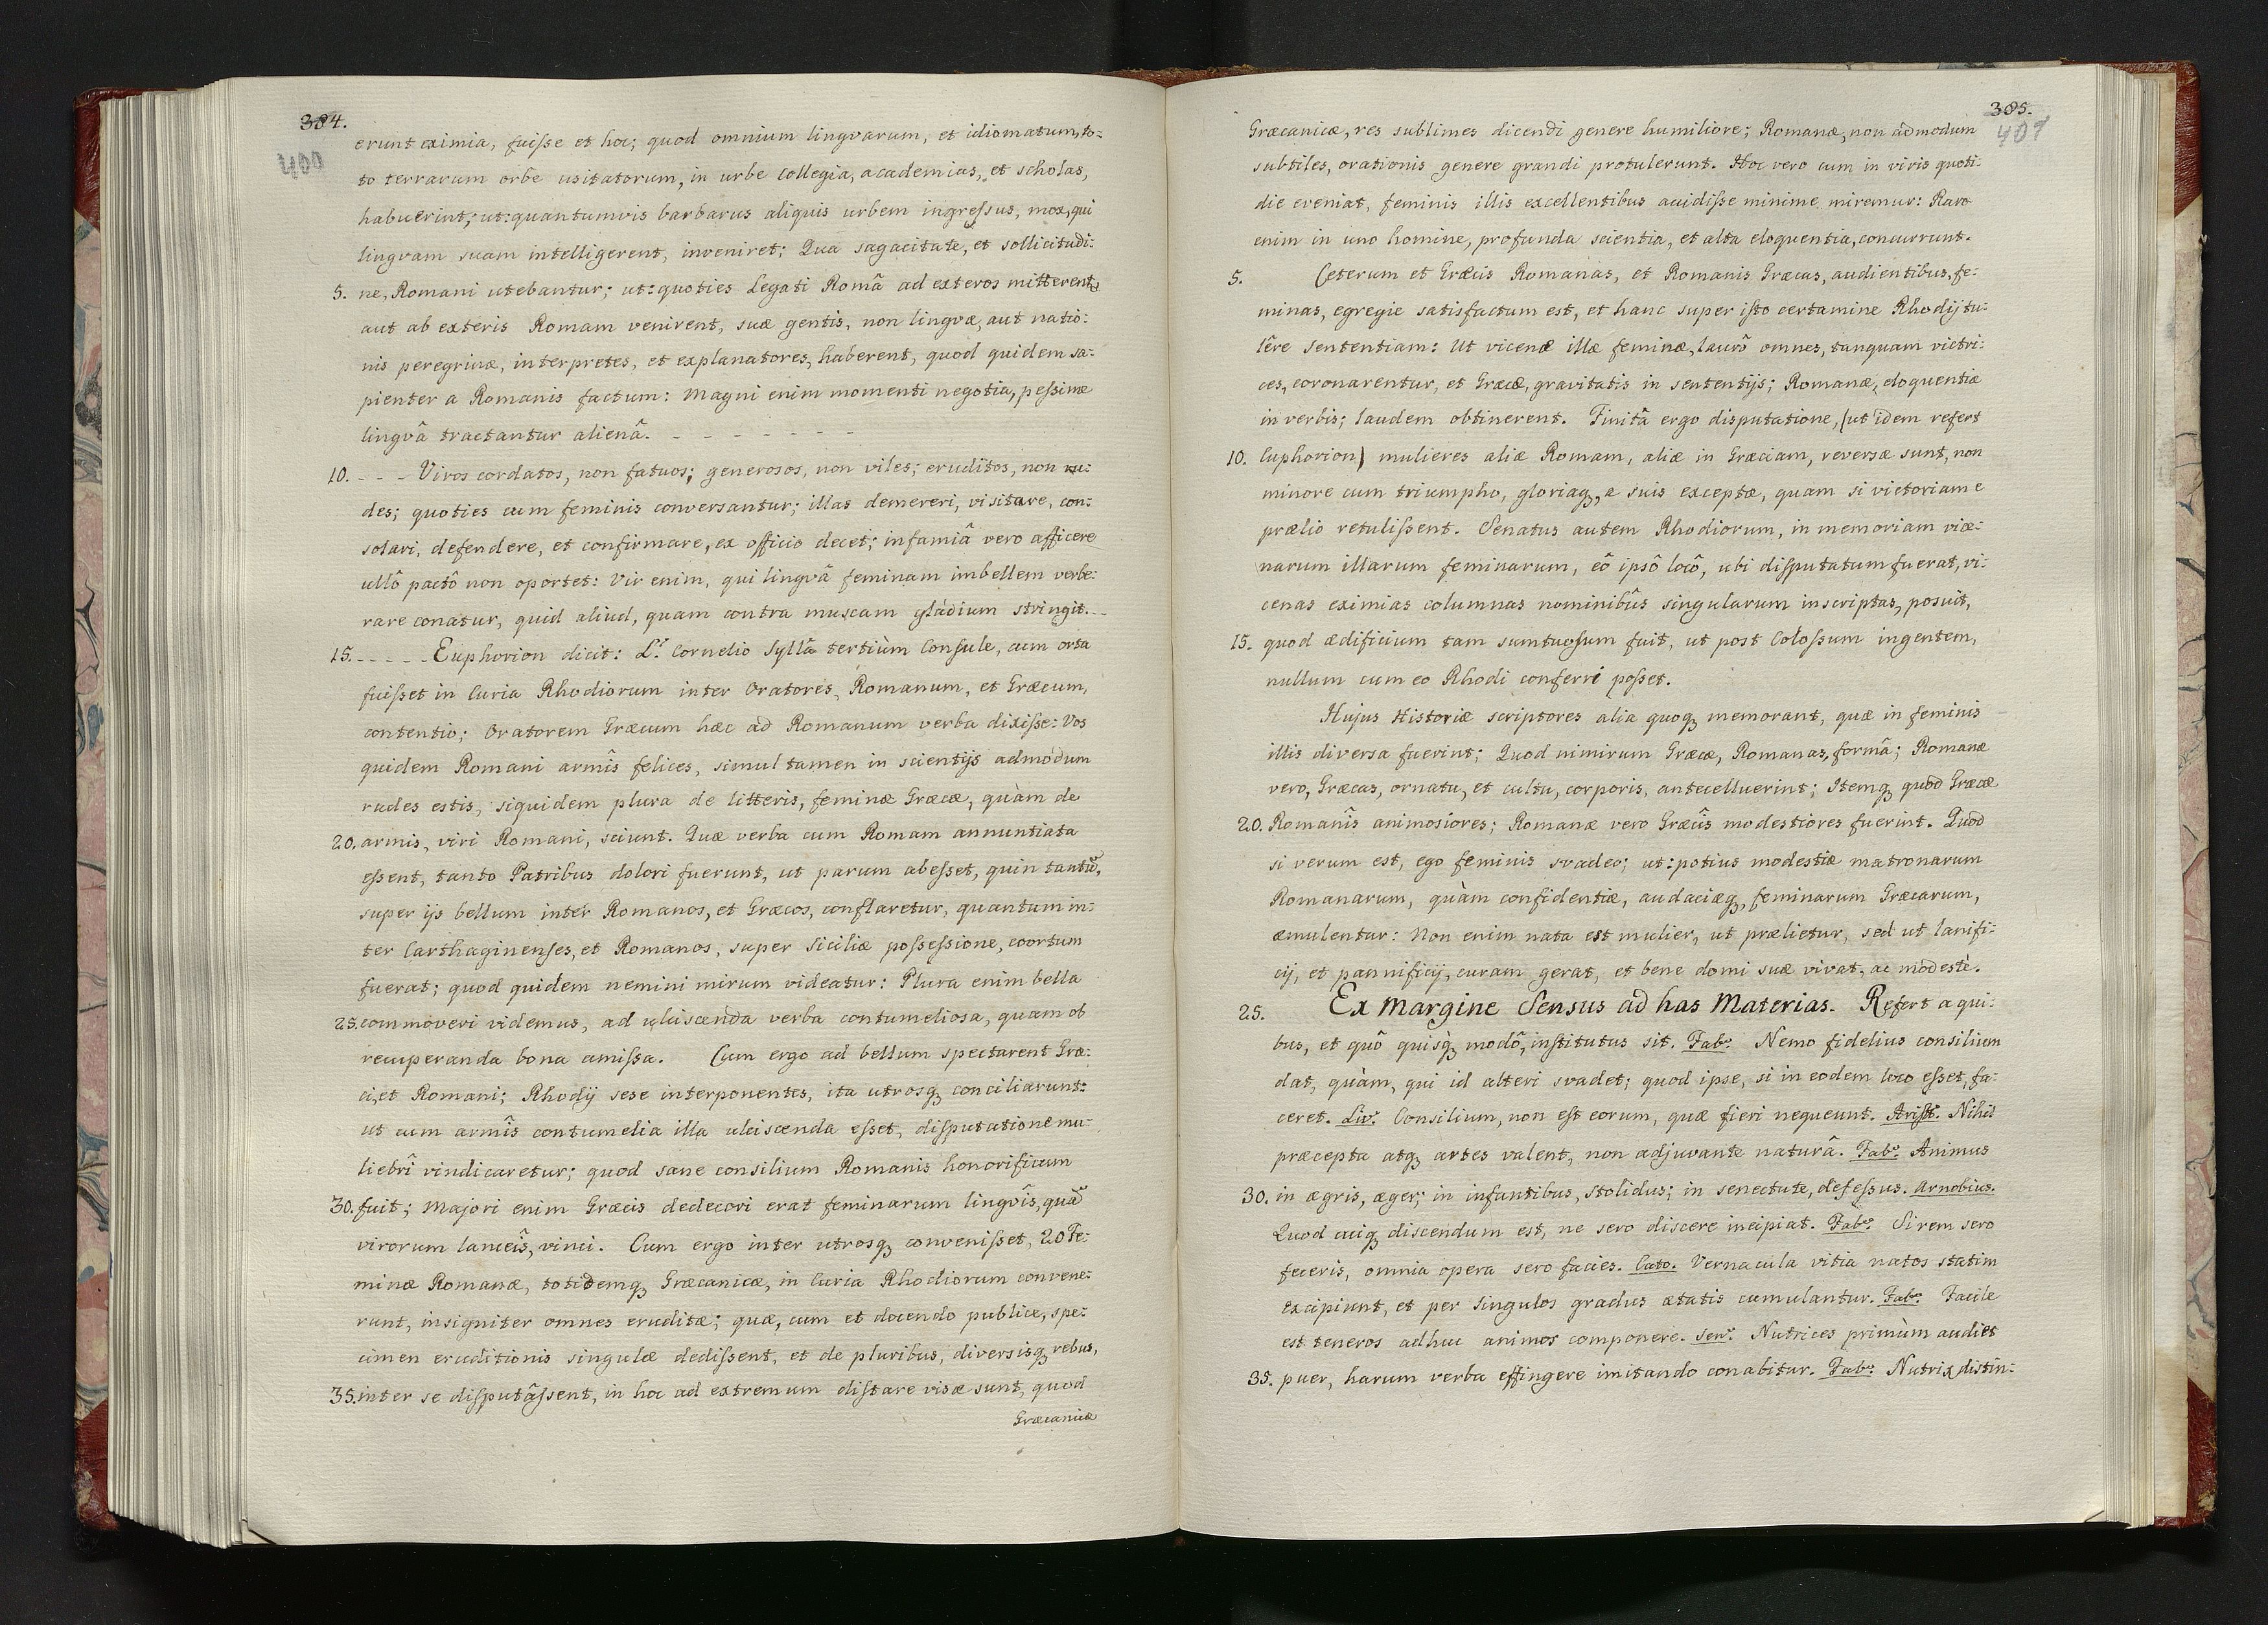 384.
400
erunt eximia, fuisse et hoc; quod omnium lingvarum, et idiomatum, to=
to terrarum orbe usitatorum, in urbe collegia, academias, et scholas,
habuerint; ut: quantumvis barbarus aliquis urbem ingressus, mox, qui
lingvam suam intelligerent, inveniret; Qua sagacitate, et sollicitudi:
5. ne, Romani utebantur; ut: quoties Legati Româ ad exteros mitterent,
aut ab exteris Romam venirent, suæ gentis, non lingvæ, aut natio:
nis peregrinæ, interpretes, et explanatores, haberent, quod quidem sa:
pienter a Romanis factum: Magni enim momenti negotia, pessime
lingvâ tractantur alienâ. - - - - - - -
10. - - - Viros cordatos, non fatuos; generosos, non viles; eruditos, non ru:
des; quoties cum feminis conversantur; illas demereri, visitare, con:
solari, defendere, et confirmare, ex officio decet; infamiâ vero afficere
ullô pactô non oportet: Vir enim, qui lingvâ feminam imbellem verbe:
rare conatur, quid aliud, quam contra muscam gladium stringit. - -
15. - - - - - Euphorion dicit: L.^o Cornelio Syllâ tertiùm Consule, cum orta
fuisset in Curia Rhodiorum inter Oratores, Romanum, et Græcum,
contentio; Oratorem Græcum hæc ad Romanum verba dixisse: Vos
quidem Romani armîs felices, simul tamen in scientijs admodum
rudes estis, siquidem plura de litteris, feminæ Græcæ, quàm de
20. armis, viri Romani, sciunt. Quæ verba cum Romam annuntiata
essent, tanto Patribus dolori fuerunt, ut parum abesset, quin tantũ,
super ijs bellum inter Romanos, et Græcos, conflaretur, quantum in:
ter Carthaginenses, et Romanos, super Siciliæ possessione, coortum
fuerat; quod quidem nemini mirum videatur: Plura enim bella
25. commoveri videmus, ad ulciscenda verba contumeliosa, quam ob
recuperanda bona amissa. Cum ergo ad bellum spectarent Græ:
ci, et Romani; Rhodij sese interponentes, ita utrosq3 conciliarunt:
ut cum armîs contumelia illa ulciscenda esset, disputatione mu:
liebrî vindicaretur; quod sane consilium Romanis honorificum
30. fuit; Majori enim Græcis dedecori erat feminarum lingvîs, quã
virorum lanceîs, vinci. Cum ergo inter utrosq3 convenisset, 20 Fe:
minæ Romanæ, totidemq3 Græcanicæ, in Curia Rhodiorum convene:
runt, insigniter omnes eruditæ; quæ, cum et docendo publice, spe:
cimen eruditionis singulæ dedissent, et de pluribus, diversisq3 rebus,
35. inter se disputâssent, in hoc ad extremum distare visæ sunt, quod
Græcanicæ
385.
401
Græcanicæ, res sublimes dicendi genere humiliore; Romanæ, non admodum
subtiles, orationis genere grandi protulerunt. Hoc vero cum in viris quoti:
die eveniat, feminis illis excellentibus accidisse minime miremur: Raro
enim in uno homine, profunda scientia, et alta eloquentia, concurrunt.
5. Ceterum et Græcis Romanas, et Romanis Græcas, audientibus, fe:
minas, egregie satisfactum est, et hanc super isto certamine Rhodij tu:
lêre sententiam: Ut vicenæ illæ feminæ, laurô omnes, tanquam victri:
ces, coronarentur, et Græcæ, gravitatis in sententijs; Romanæ, eloquentiæ
in verbis; laudem obtinerent. Finitâ ergo disputatione, (ut idem refert
10. Euphorion) mulieres aliæ Romam, aliæ in Græciam, reversæ sunt, non
minore cum triumpho, gloriaq3, a suis exceptæ, quam si victoriam e
prælio retulissent. Senatus autem Rhodiorum, in memoriam vice:
narum illarum feminarum, eô ipsô locô, ubi disputatum fuerat, vi:
cenas eximias columnas nominibûs singularum inscriptas, posuit,
15. quod ædificium tam sumtuosum fuit, ut post Colossum ingentem,
nullum cum eo Rhodi conferri posset.
Hujus Historiæ scriptores alia quoq3 memorant, quæ in feminis
illis diversa fuerint; Quod nimirum Græcæ, Romanas, formâ; Romanæ
vero, Græcas, ornatu, et cultu, corporis, antecelluerint; Itemq3 quod Græcæ
20. Romanîs animosiores; Romanæ vero Græcîs modestiores fuerint. Quod
si verum est, ego feminis svadeo; ut: potius modestiæ matronarum
Romanarum, quàm confidentiæ, audaciæq3, feminarum Græcarum,
æmulentur: Non enim nata est mulier, ut prælietur, sed ut lanifi:
cij, et pannificij, curam gerat, et bene domi suæ vivat, ac modestè.
25. Ex Margine Sensus ad has Materias. Refert a qui:
bus, et quô quisq3 modô, institutus sit. Fab: Nemo fidelius consilium
dat, quàm, qui id alteri svadet; quod ipse, si in eodem loco esset, fa:
ceret. Liv: Consilium, non est eorum, quæ fieri nequeunt. Arist: Nihil
præcepta atq3 artes valent, non adjuvante naturâ. Fab: Animus
30. in ægris, æger; in infantibus, stolidus; in senectute, defessus. Arnobius.
Quod cuiq3 discendum est, ne sero discere incipiat. Fab: Si rem sero
feceris, omnia opera sero facies. Cato. Vernacula vitia natos statim
excipiunt, et per singulos gradus ætatis cumulantur. Fab: Facile
est teneros adhuc animos componere. Sen: Nutrices primùm audiet
35. puer, harum verba effingere imitando conabitur. Fab: Nutrix distin: